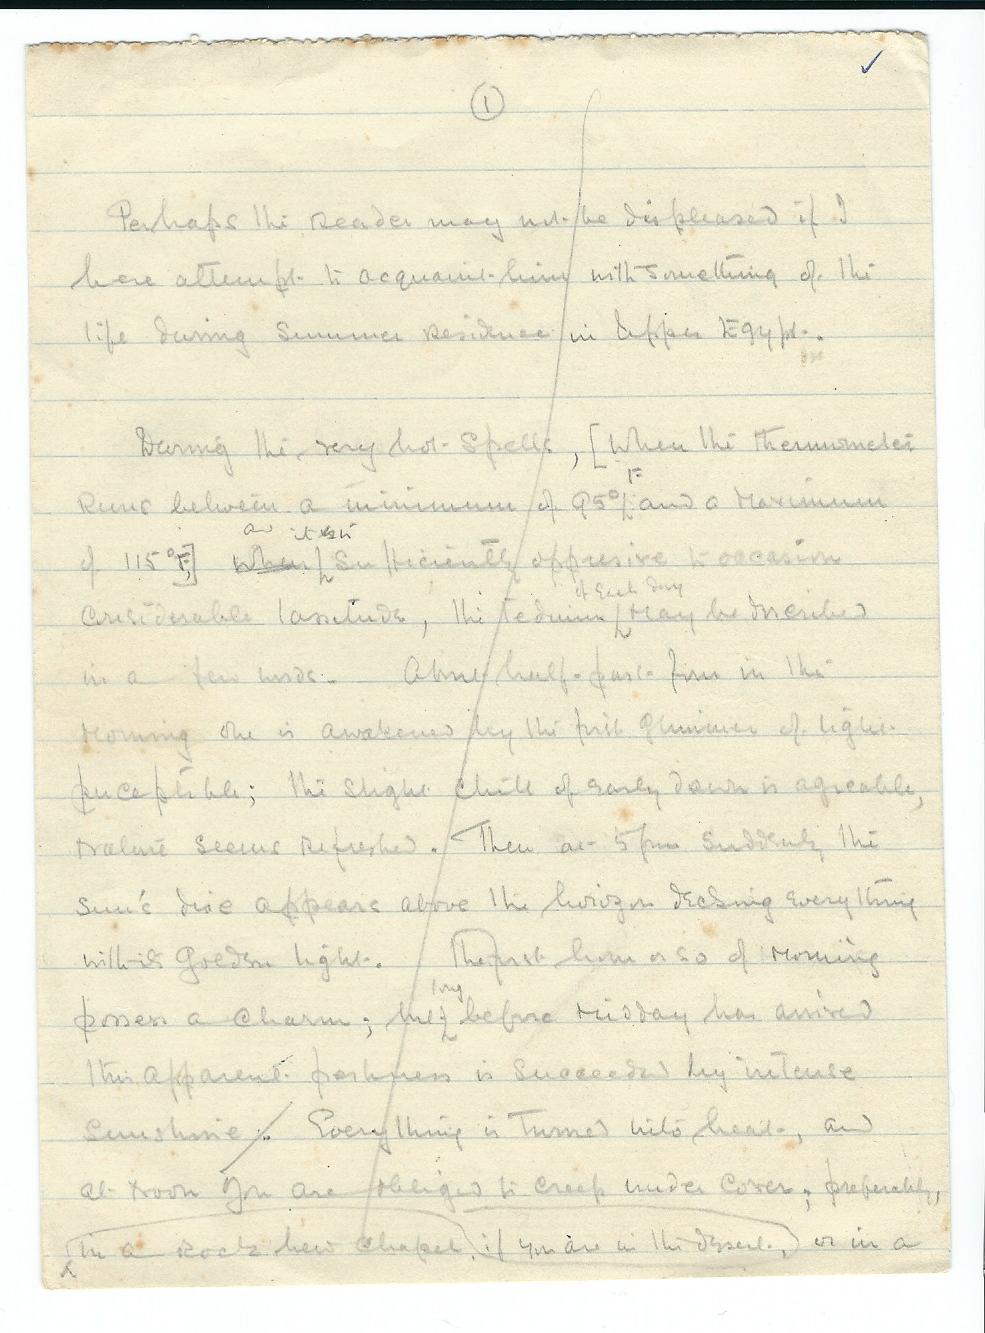 1
Perhaps the Reader may not be displeased if I
here attempt to acquaint him with something of the
life during Summer Residence in Upper Egypt.
During the very hot Spells, [When the thermometer
F
Runs between a minimum of 95° and a Maximum
and it is
of 115°F,] when Sufficiently oppresive to occasion
of Each day
Considerable lassitude, the tedium May be described
in a few words. About half-past four in the
Morning one is awakened by the first Glimmer of light
perceptible; the slight chill of early dawn is agreeable,
Nature seems Refreshed. Then at 5 pm Suddenly the
sun's disc appears above the horizon decking Everything
with its Golden light. The first hour or so of Morning
long
possess a Charm; but before Midday has arrived
this apparent freshness is Succeeded by intense
Sunshine. Everything is Turned into heat, and
at Noon You are obliged to creep under Cover; preferably,
in a Rock hewn Chapel, if you are in the desert, or in a